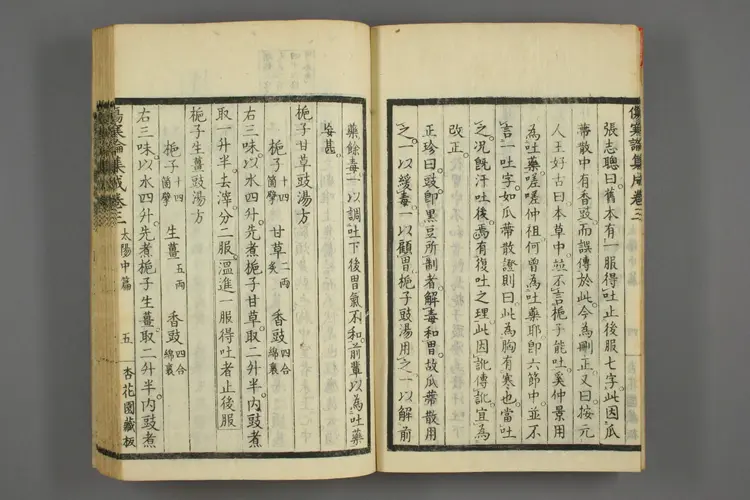 傷寒論集成卷三
張志聰曰。舊本有一服得吐止後服七字。此因瓜
蒂散中有香豉而誤傳於此。今為刪正。又曰。按元
人王好古曰。本草中。並不言梔子能吐。奚仲景用
為吐藥。嗟嗟仲祖何曾為吐藥耶。即六節中。並不
言一吐字。如瓜蒂散證則曰。此為胸有寒也。當吐
之。況既汗吐後。焉有復吐之理。此因訛傳訛。宜為
改正。
正珍曰。豉。即黑豆所制者。解毒和胃。故瓜蒂散用
之。一以緩毒。一以顧胃。梔子豉湯用之。一以解前
藥餘毒。一以調吐下後胃氣不和。前輩以為吐藥
妄甚。
梔子甘草豉湯方
梔子十四箇擘 甘草二兩炙 香豉四合綿裹
右三味。以水四升。先煮梔子甘草。取二升半。內豉煮
取一升半。去滓分二服。溫進一服得吐者止後服
梔子生薑豉湯方
梔子十四箇擘 生薑五兩 香豉四合綿裹
右三味。以水四升。先煮梔子生薑。取二升半。內豉煮
傷寒論集成卷三 太陽中篇 五 杏花園藏板